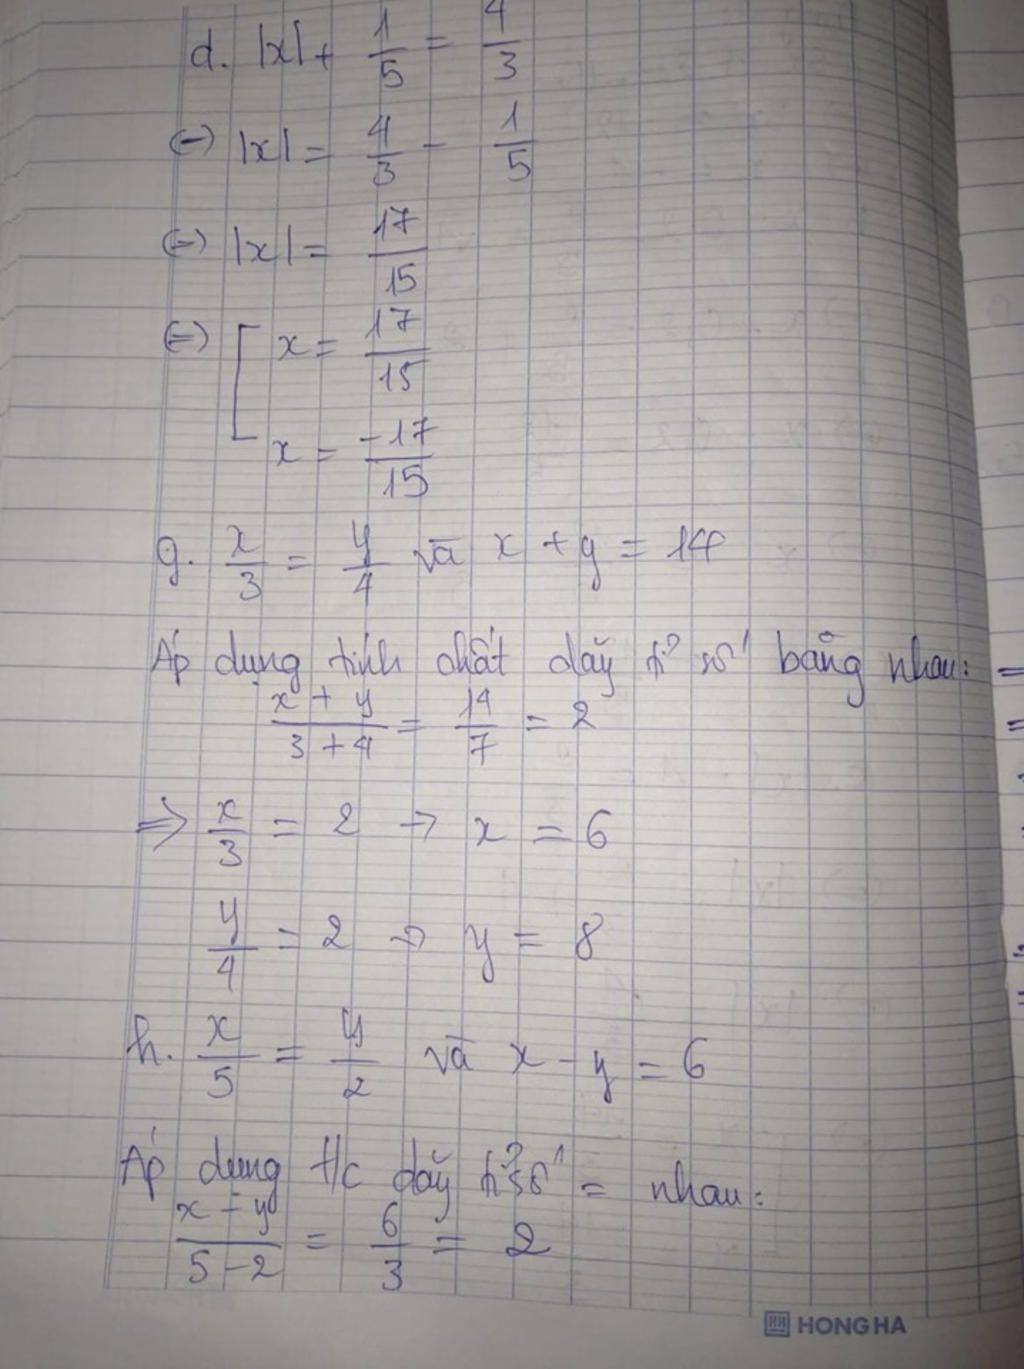 d. |x| + 1/5 = 4/3
(=) |x| = 4/3 - 1/5
(=) |x| = 17/15
(=) [ x = 17/15
x = -17/15
g. x/3 = y/4 và x + y = 14
Áp dụng tính chất dãy tỉ số bằng nhau:
x + y / 3 + 4 = 14/7 = 2
=> x/3 = 2 → x = 6
y/4 = 2 → y = 8
h. x/5 = y/2 và x - y = 6
Áp dụng t/c dãy tỉ số = nhau:
x - y / 5 - 2 = 6/3 = 2
HONG HA